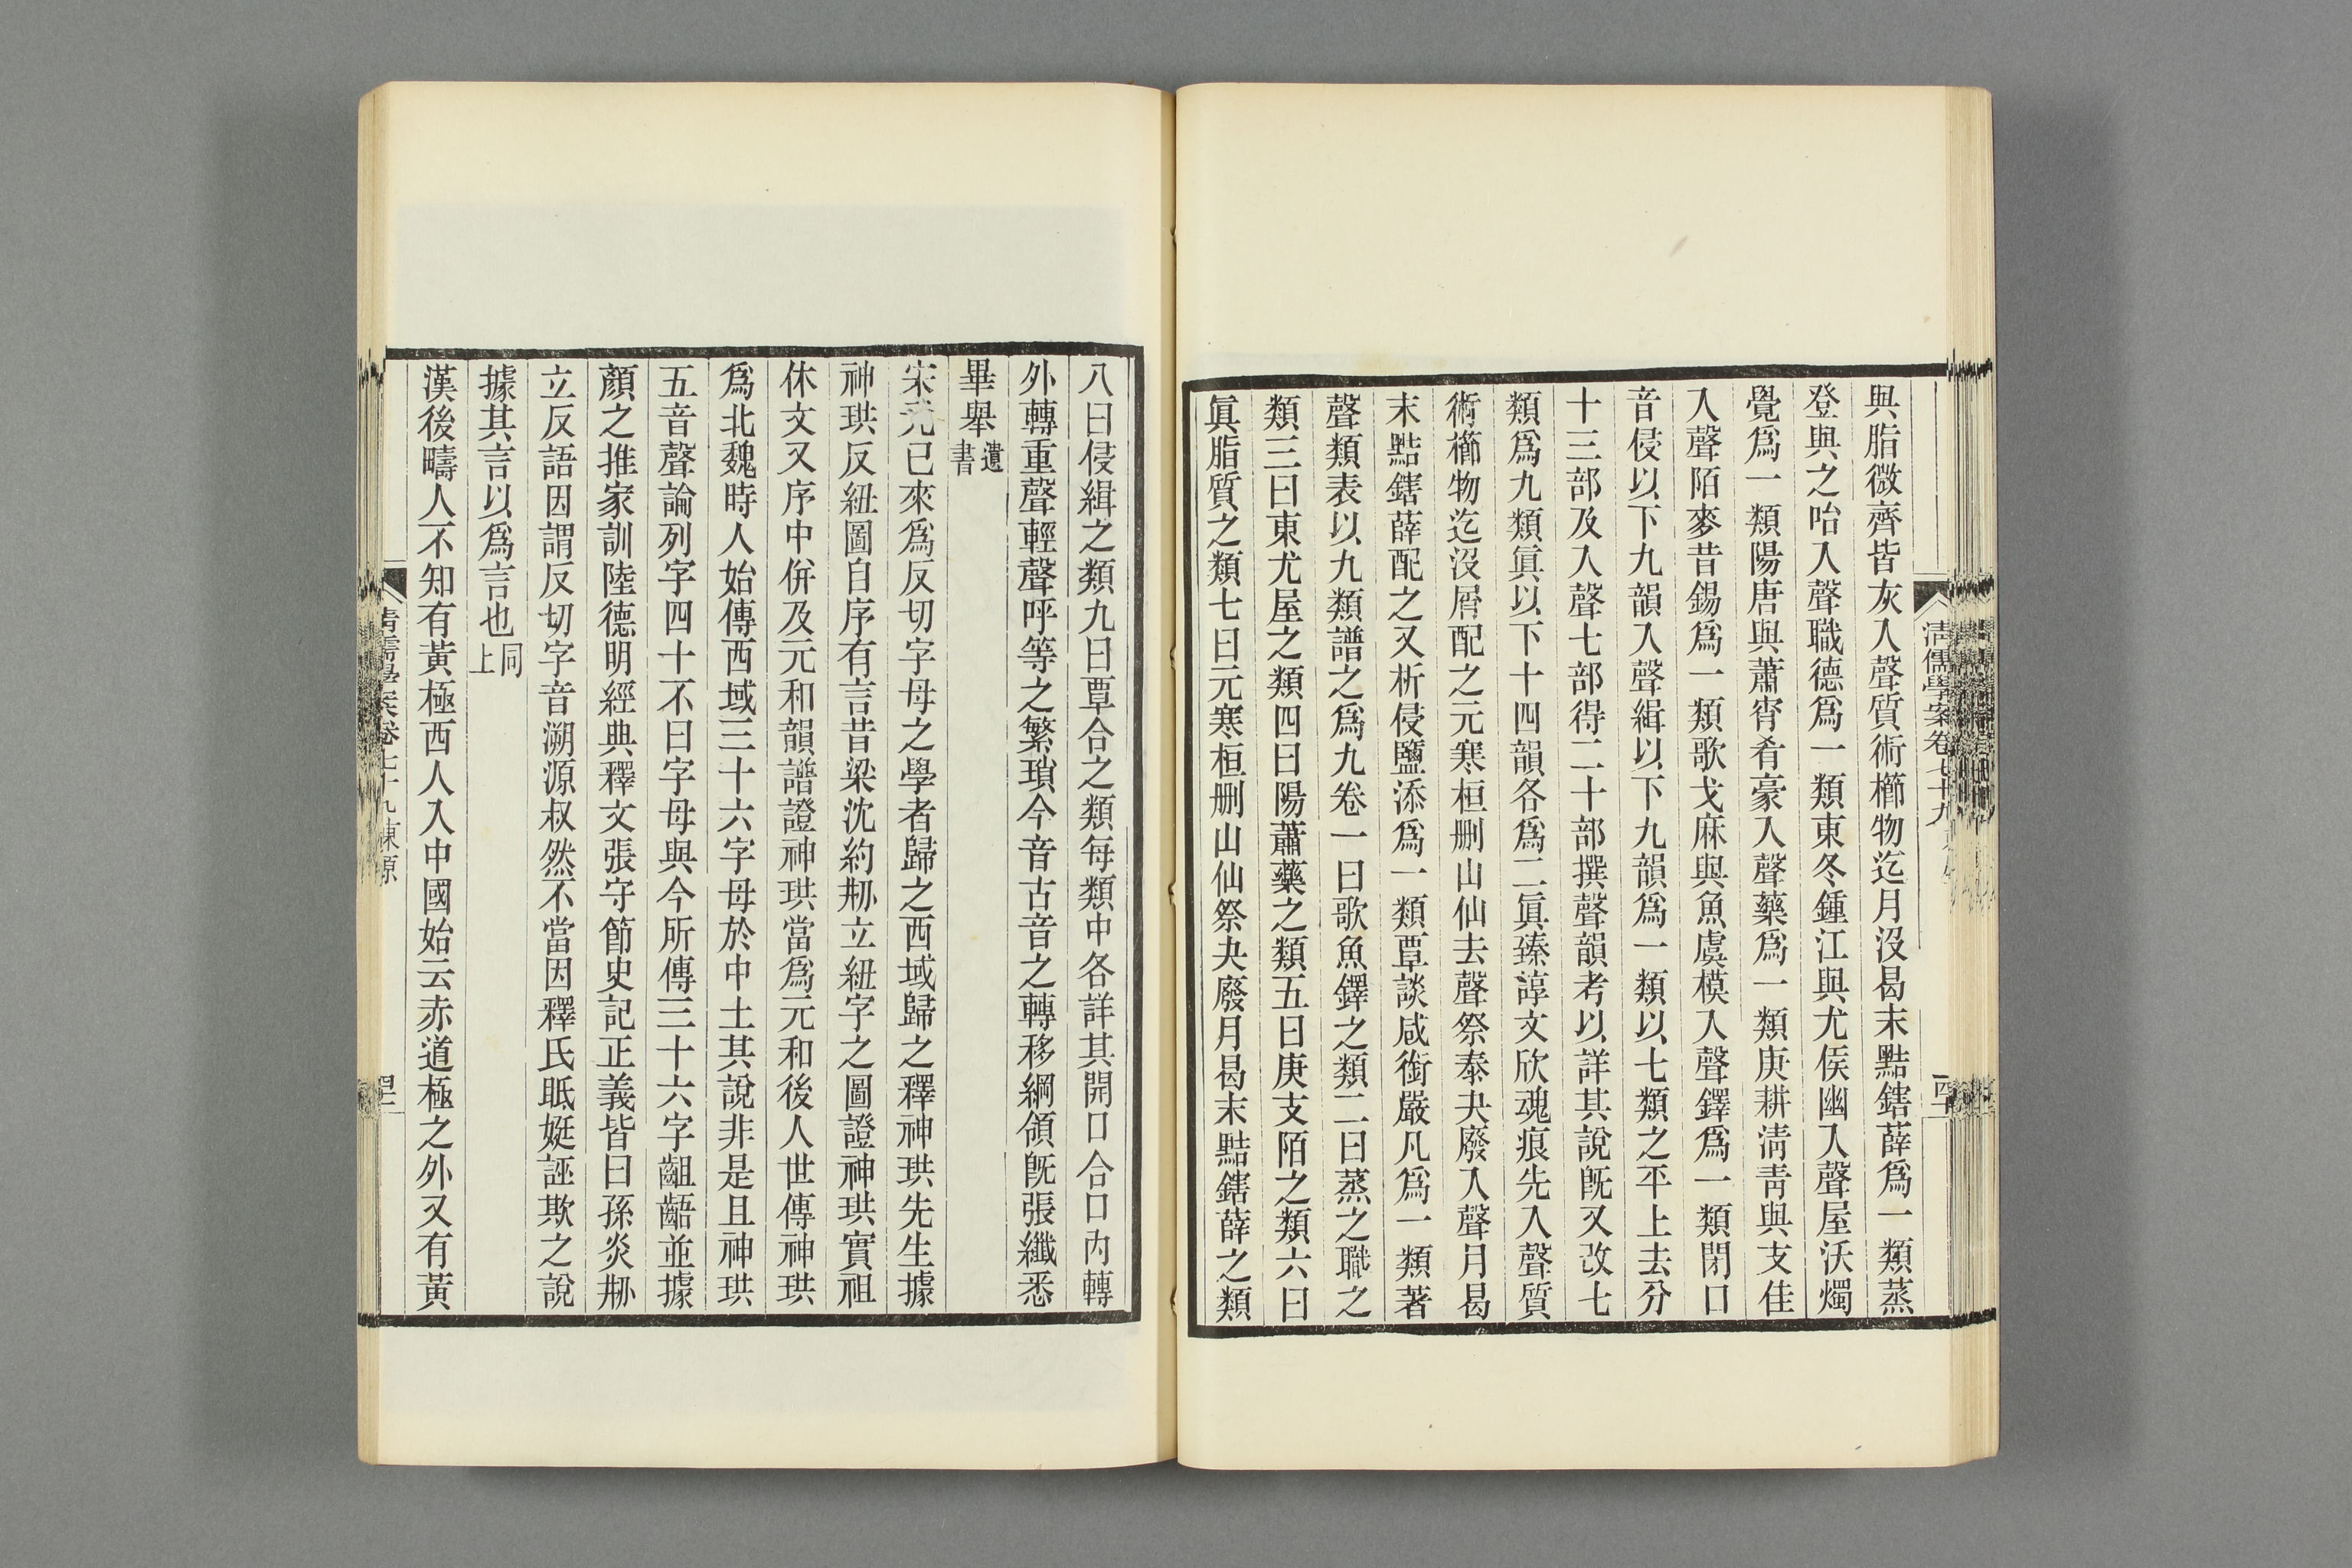 與脂微齊皆灰入聲質術櫛物迄月沒曷末黠鎋薛爲一類蒸
登與之咍入聲職德爲一類東冬鍾江與尤侯幽入聲屋沃燭
覺爲一類陽唐與蕭宵肴豪入聲藥爲一類庚耕淸靑與支佳
入聲陌麥昔錫爲一類歌戈麻與魚虞模入聲鐸爲一類閉口
音侵以下九韻入聲緝以下九韻爲一類以七類之平上去分
十三部及入聲七部得二十部撰聲韻考以詳其說旣又改七
類爲九類眞以下十四韻各爲二眞臻諄文欣魂痕先入聲質
術櫛物迄沒屑配之元寒桓刪山仙去聲祭泰夬廢入聲月曷
末黠鎋薛配之又析侵鹽添爲一類覃談咸銜嚴凡爲一類著
聲類表以九類譜之爲九卷一曰歌魚鐸之類二曰蒸之職之
類三曰東尤屋之類四曰陽蕭藥之類五曰庚支陌之類六曰
眞脂質之類七曰元寒桓刪山仙祭夬廢月曷末黠鎋薛之類
清儒學案卷七十九
八曰侵緝之類九曰覃合之類每類中各詳其開口合口內轉
外轉重聲輕聲呼等之繁瑣今音古音之轉移綱領旣張纖悉
畢舉遺書
宋元已來爲反切字母之學者歸之西域歸之釋神珙先生據
神珙反紐圖自序有言昔梁沈約剏立紐字之圖證神珙實祖
休文又序中併及元和韻譜證神珙當爲元和後人世傳神珙
爲北魏時人始傳西域三十六字母於中土其說非是且神珙
五音聲論列字四十不曰字母與今所傳三十六字齟齬並據
顏之推家訓陸德明經典釋文張守節史記正義皆曰孫炎剏
立反語因謂反切字音溯源叔然不當因釋氏眂娗誣欺之說
據其言以爲言也同上
漢後疇人不知有黃極西人入中國始云赤道極之外又有黃
清儒學案卷七十九東原